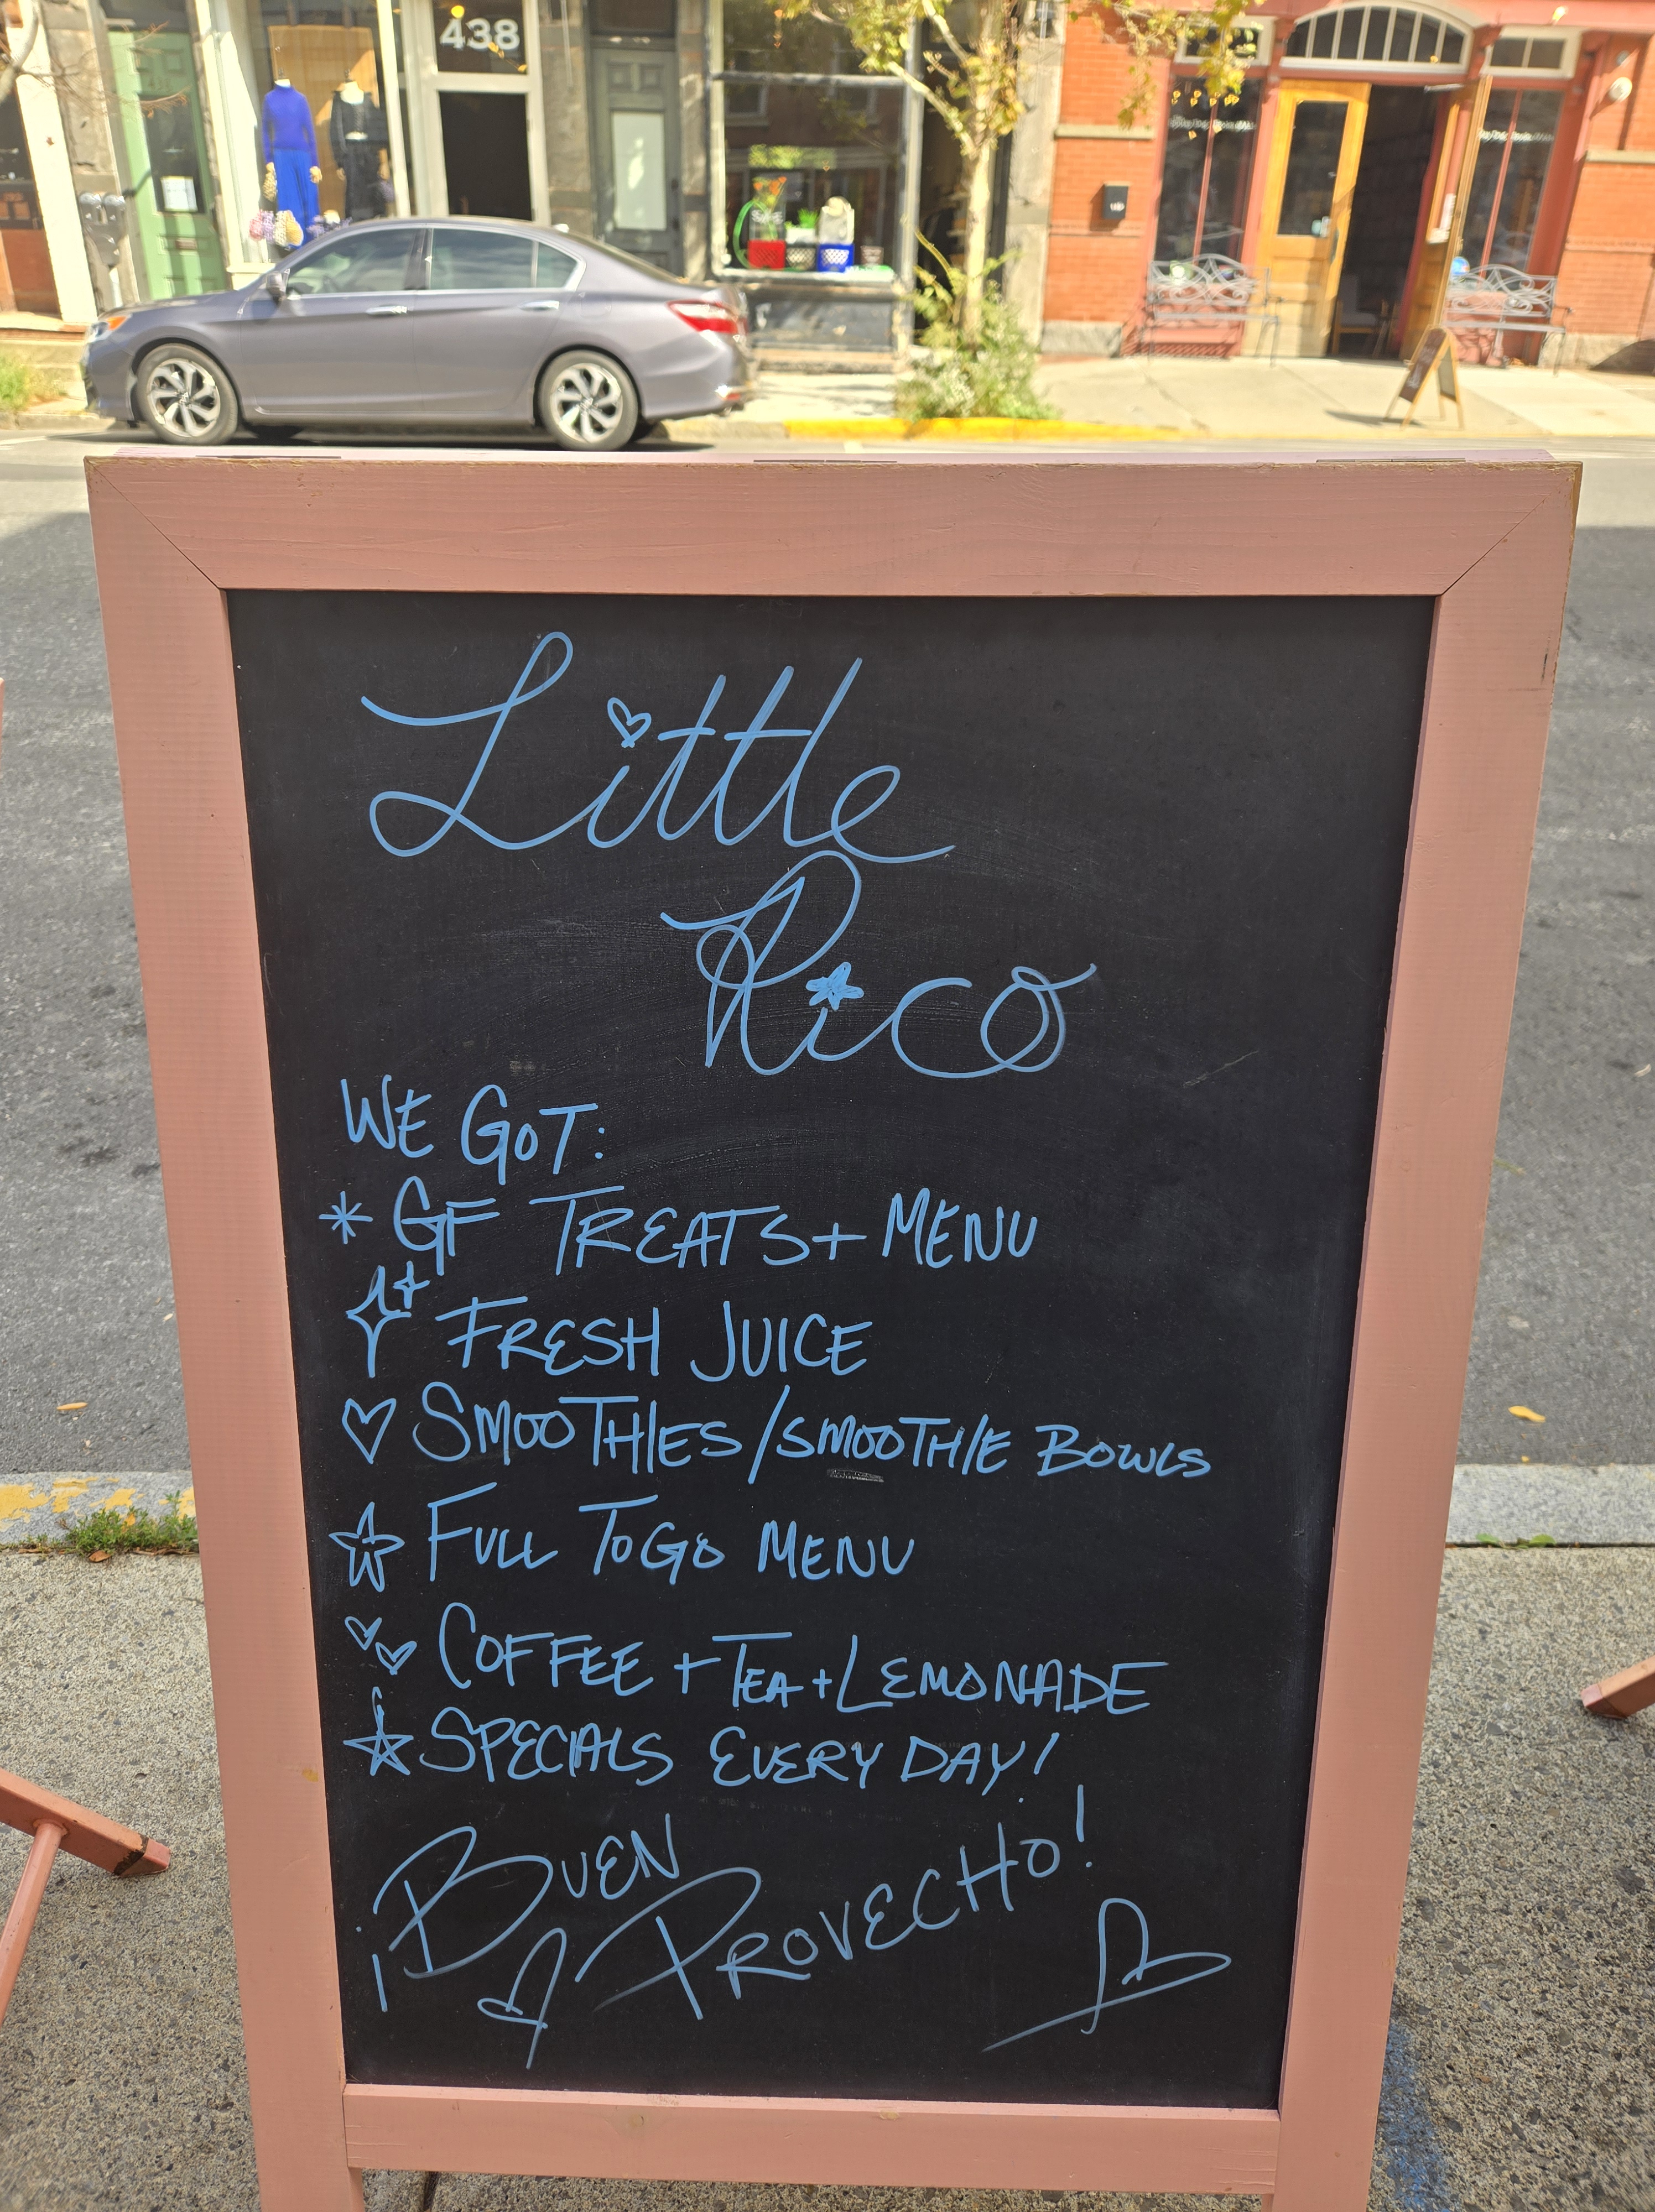 438
Little
Rico
WE GOT:
* GF TREATS + MENU
FRESH JUICE
SMOOTHIES/SMOOTHIE BOWLS
FULL TOGO MENU
COFFEE + TEA + LEMONADE
SPECIALS EVERY DAY!
¡BUEN
PROVECHO!